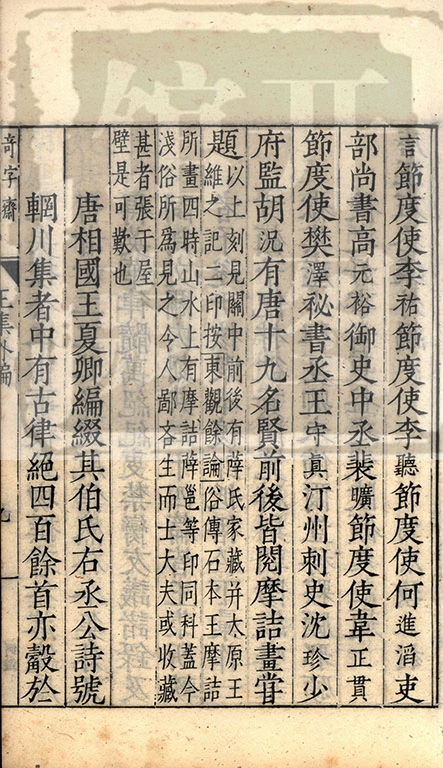 言節度使李祐節度使李聽節度使何進滔吏
部尚書高元裕御史中丞裴曠節度使韋正貫
節度使樊澤祕書丞王守真汀州刺史沈珍少
府監胡況有唐十九名賢前後皆閱摩詰畫嘗
題以上刻見關中前後有薛氏家藏并太原王
維之記二印按東觀餘論俗傳石本王摩詰
所畫四時山水上有摩詰薛邕等印同科蓋今
淺俗所為見之今人鄙吝生而士大夫或收藏
甚者張于屋
壁是可歎也
唐相國王夏卿編綴其伯氏右丞公詩號
輞川集者中有古律絕四百餘首亦縠於
奇字齋
王集外編
九